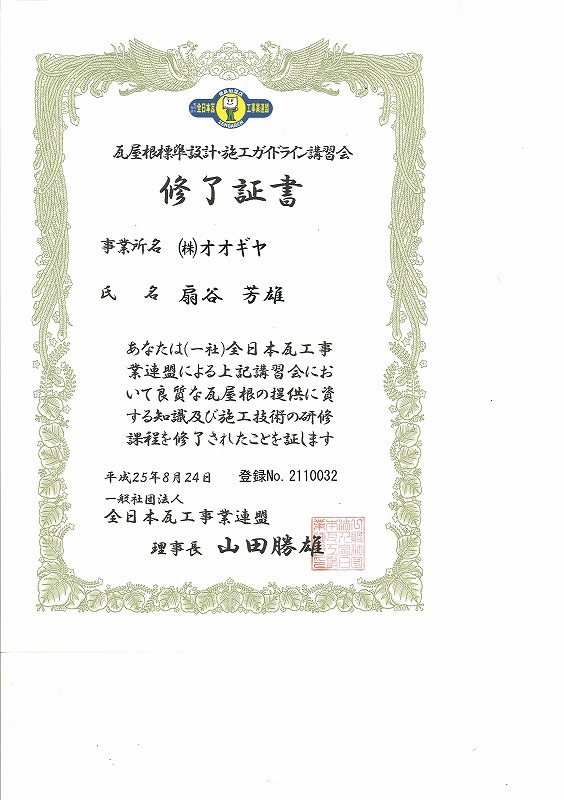 全日本瓦 工事業連盟
瓦屋根標準設計・施工ガイドライン講習会
修了証書
事業所名 ㈱オオギヤ
氏 名 扇谷 芳雄
あなたは(一社)全日本瓦工事
業連盟による上記講習会にお
いて良質な瓦屋根の提供に資
する知識及び施工技術の研修
課程を修了されたことを証します
平成25年8月24日 登録No. 2110032
一般社団法人
全日本瓦工事業連盟
理事長 山田勝雄